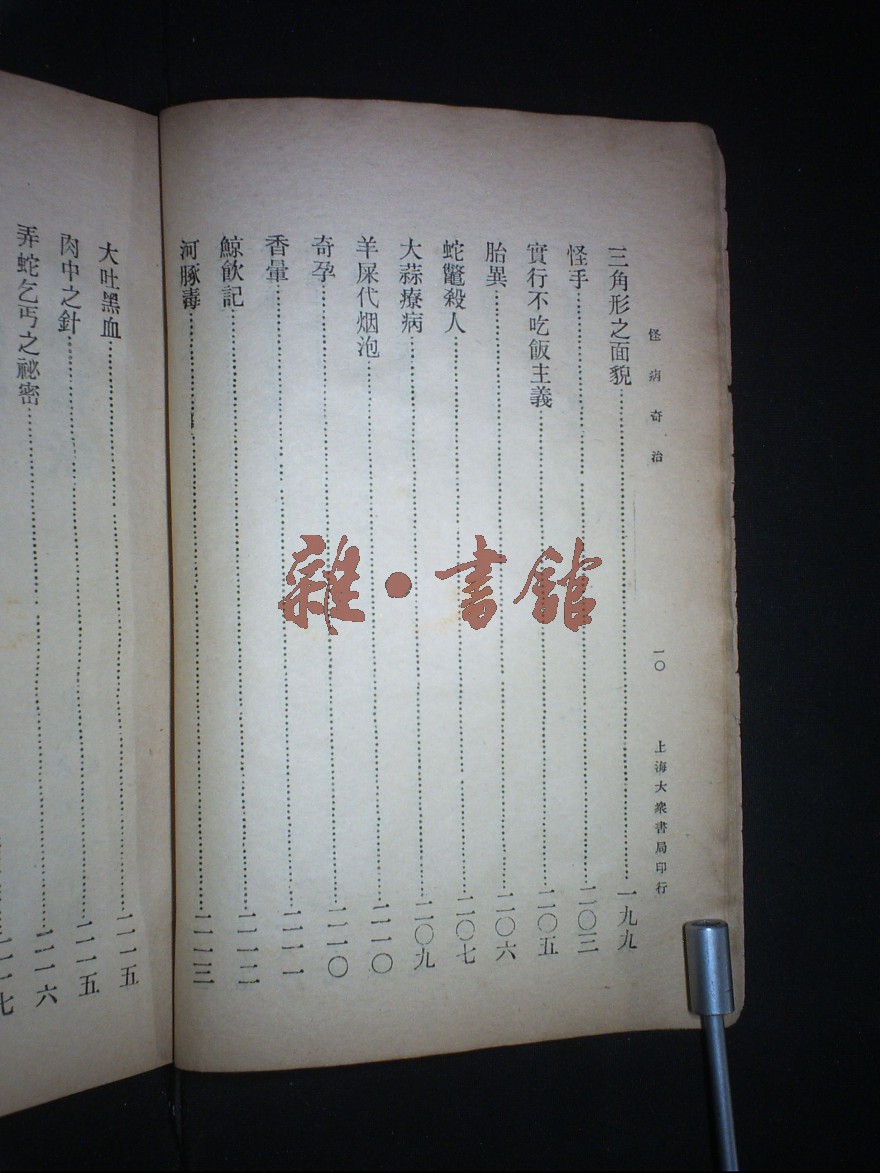 怪病奇治
一〇
上海大衆書局印行
三角形之面貌 一九九
怪手 二〇三
實行不吃飯主義 二〇五
胎異 二〇六
蛇鼈殺人 二〇七
大蒜療病 二〇九
羊屎代烟泡 二一〇
奇孕 二一〇
香暈 二一一
鯨飲記 二一二
河豚毒 二一三
大吐黑血 二一五
肉中之針 二一五
弄蛇乞丐之祕密 二一六
二一七
雜·書館